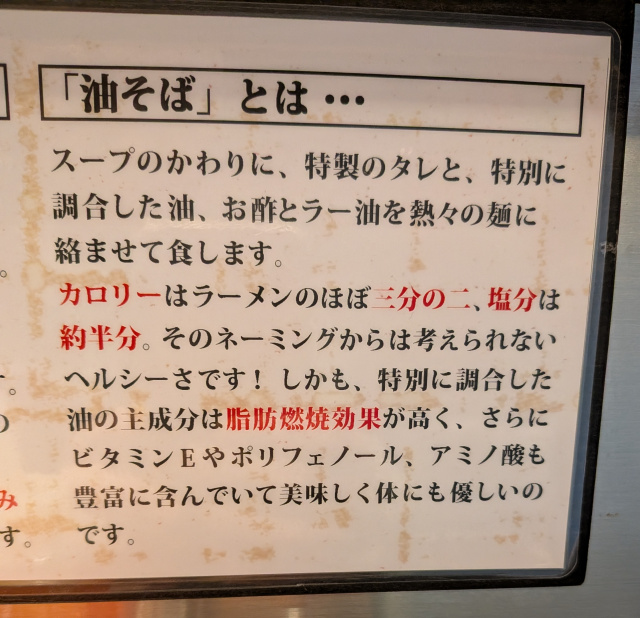 「油そば」とは…
スープのかわりに、特製のタレと、特別に
調合した油、お酢とラー油を熱々の麺に
絡ませて食します。
カロリーはラーメンのほぼ三分の二、塩分は
約半分。そのネーミングからは考えられない
ヘルシーさです！しかも、特別に調合した
油の主成分は脂肪燃焼効果が高く、さらに
ビタミンEやポリフェノール、アミノ酸も
豊富に含んでいて美味しく体にも優しいの
です。
。
す。
の
み
す。